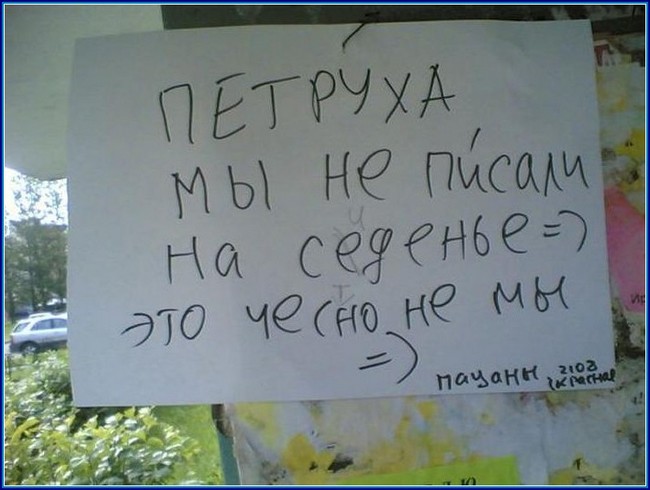 ПЕТРУХА
МЫ НЕ ПИ́САЛИ
НА СЕДЕНЬЕ =)
ЭТО ЧЕСНО НЕ МЫ
=)
пацаны 2103
красная